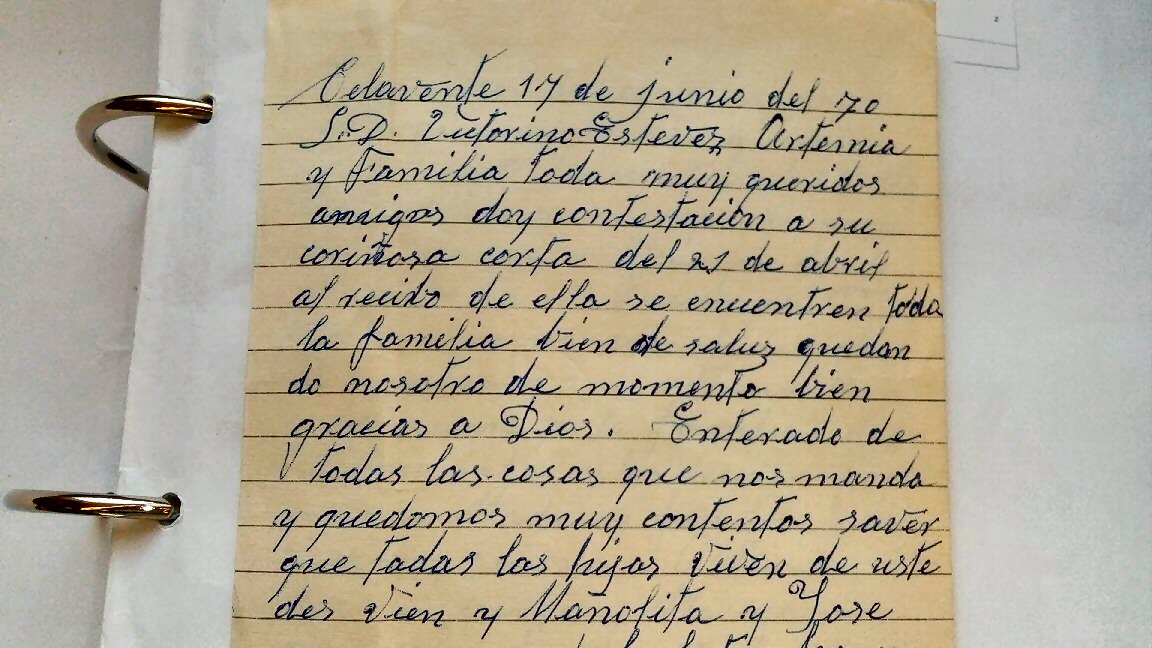 Celavente 17 de junio del 70
S.D. Eutorino Estevez Artemia
y Familia toda muy queridos
amigos doy contestacion a su
coriñosa corta del 21 de abril
al recibo de ella se encuentren toda
la familia bien de saluz quedan
do nosotro de momento bien
gracias a Dios. Enterado de
todas las cosas que nos manda
y quedomos muy contentos saver
que todas las hijas viven de uste
des vien y Mañolita y Jose